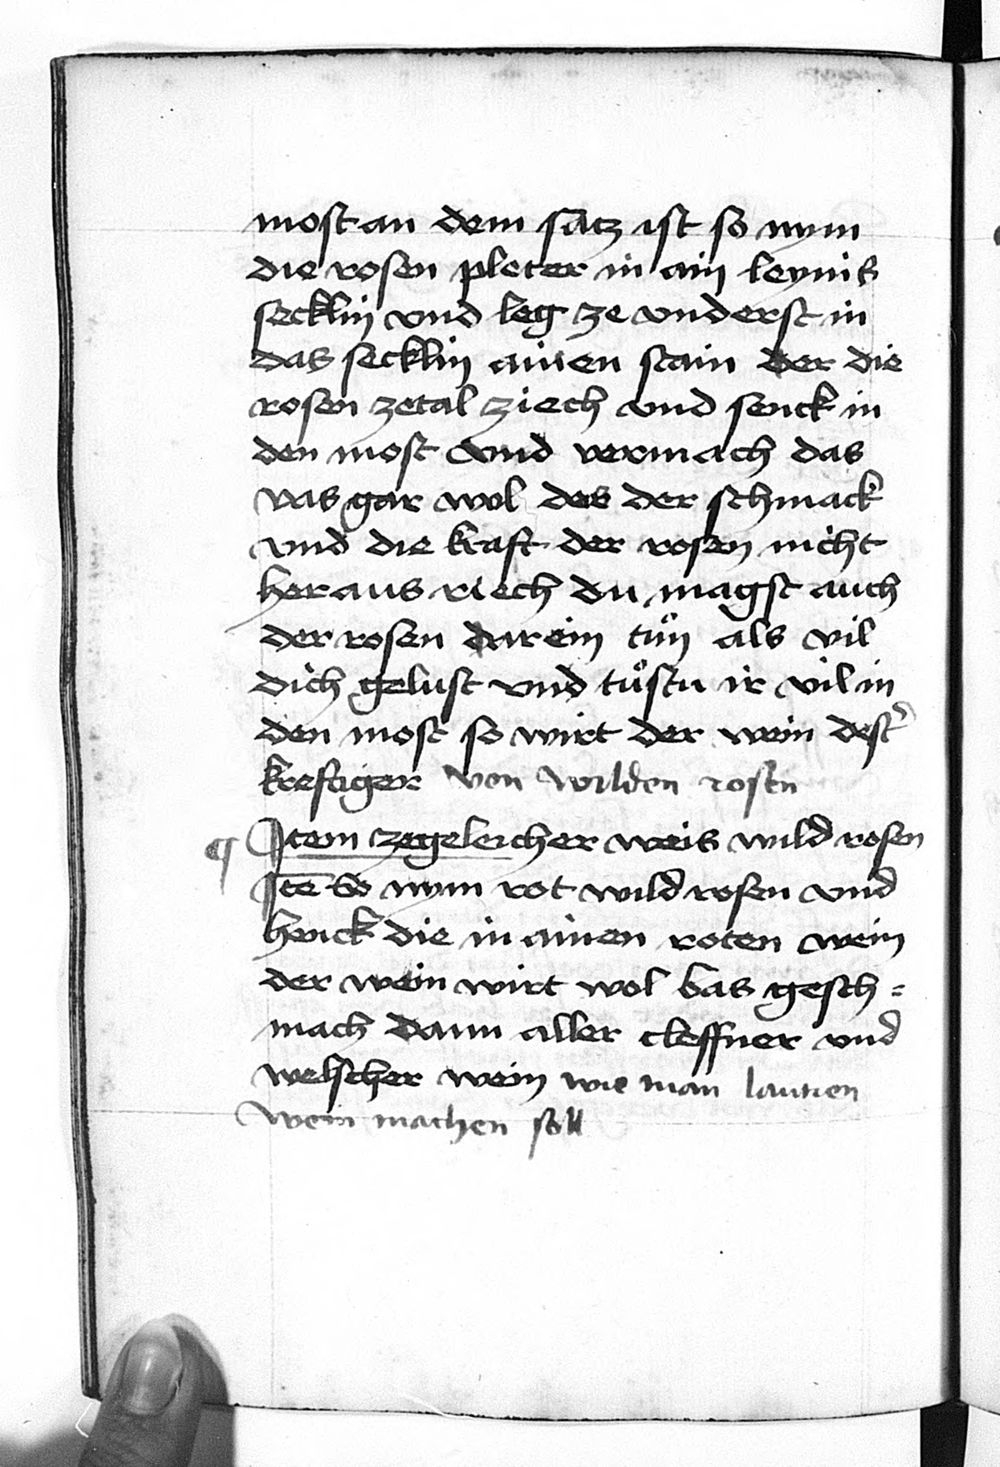 most an dem satz ist so nym
die rosen pleter in ain leynis
secklin vnd leg ze vnderst in
das secklin ainen stain der die
rosen zetal ziech vnd senck in
den most vnd vermach das
vas gar wol des der schmack
vnd die kraft der rosen nicht
her aus riech du magst auch
der rosen darein tuͦn als vil
dich gelust vnd tuͦstu ir vil in
den most so wirt der wein dest᾽
kreftiger Von Wilden rosen
¶ Item zegeleicher weis wild rosen
Itē So nym rot wild rosen vnd
henck die in ainen roten wein
der wein wirt wol bas gesch=
mach dann aller cleffner vnd
welscher wein wie man lautten
Wein machen soll